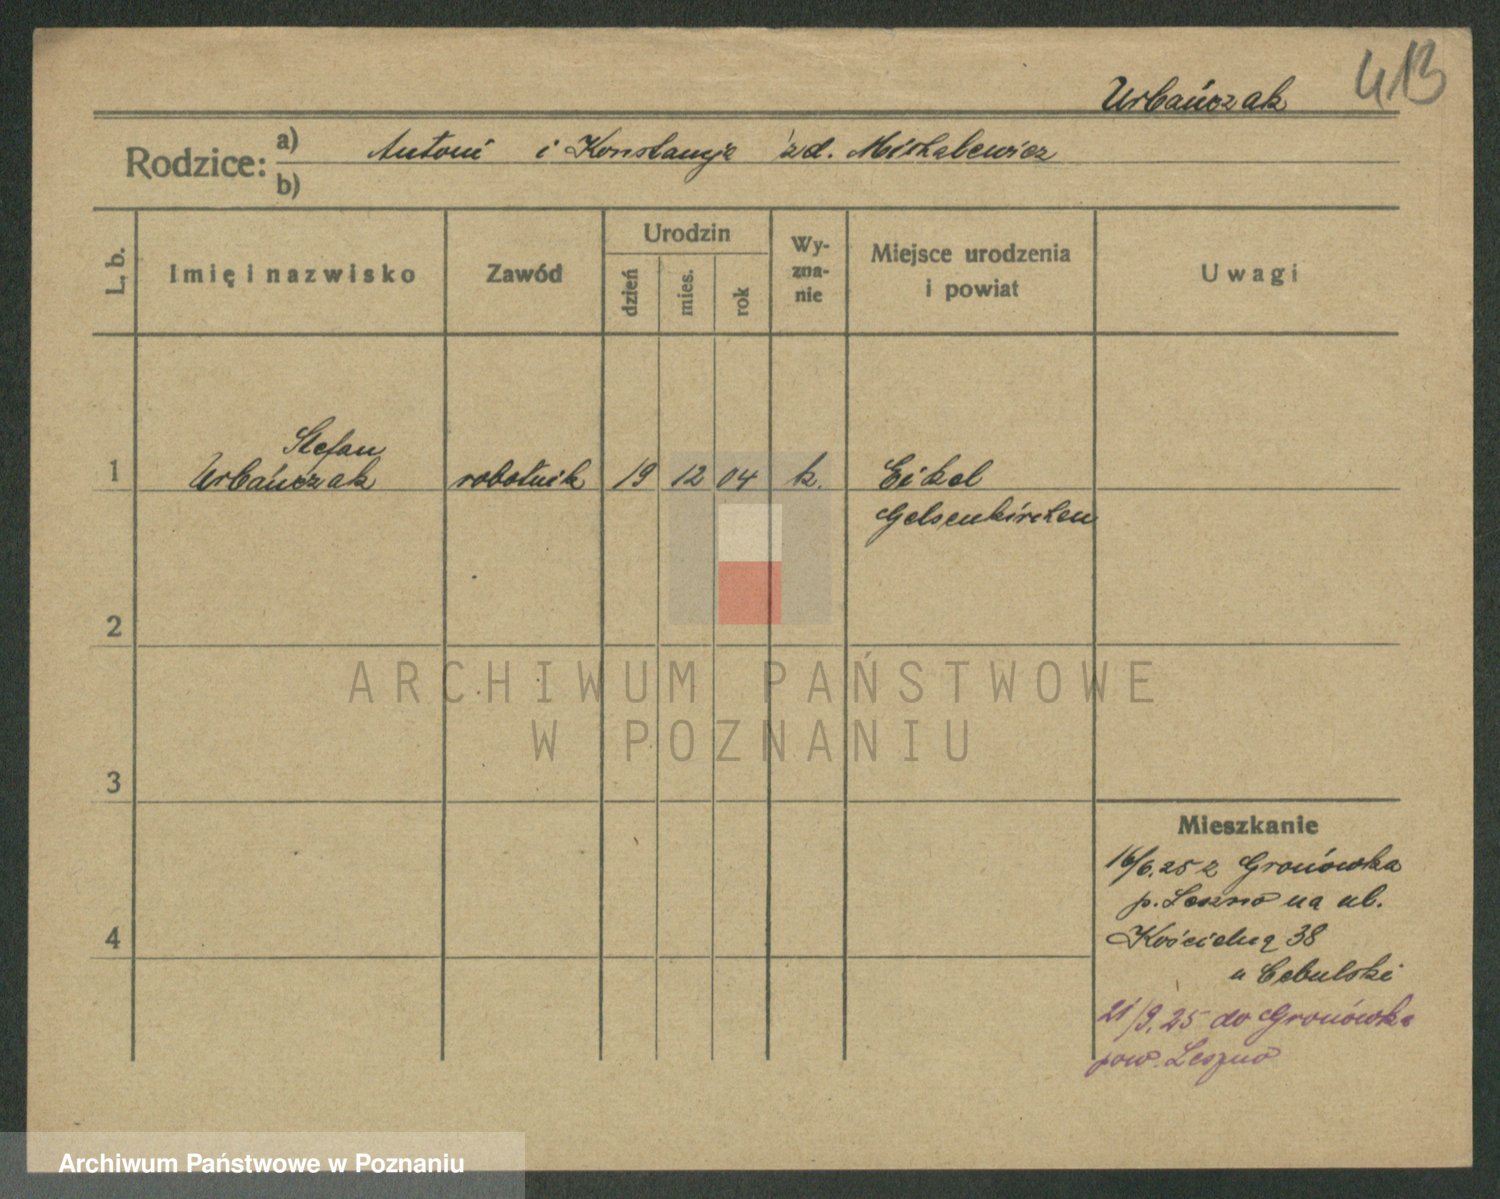 413
Urbańczak
Rodzice: a) Antoni i Konstancja zd. Michalewicz
b)
L. b. Imię i nazwisko Zawód Urodzin dzień mies. rok Wy-zna-nie Miejsce urodzenia i powiat Uwagi
Stefan
1 Urbańczak robotnik 19 12 04 k. Eikel
Gelsenkirchen
2
ARCHIWUM PAŃSTWOWE
W POZNANIU
3
Mieszkanie
16/6.25 z Gronówka
p. Leszno na ul.
4 Kościelną 38
u Cebulski
21/9.25 do Gronówka
pow. Leszno
Archiwum Państwowe w Poznaniu